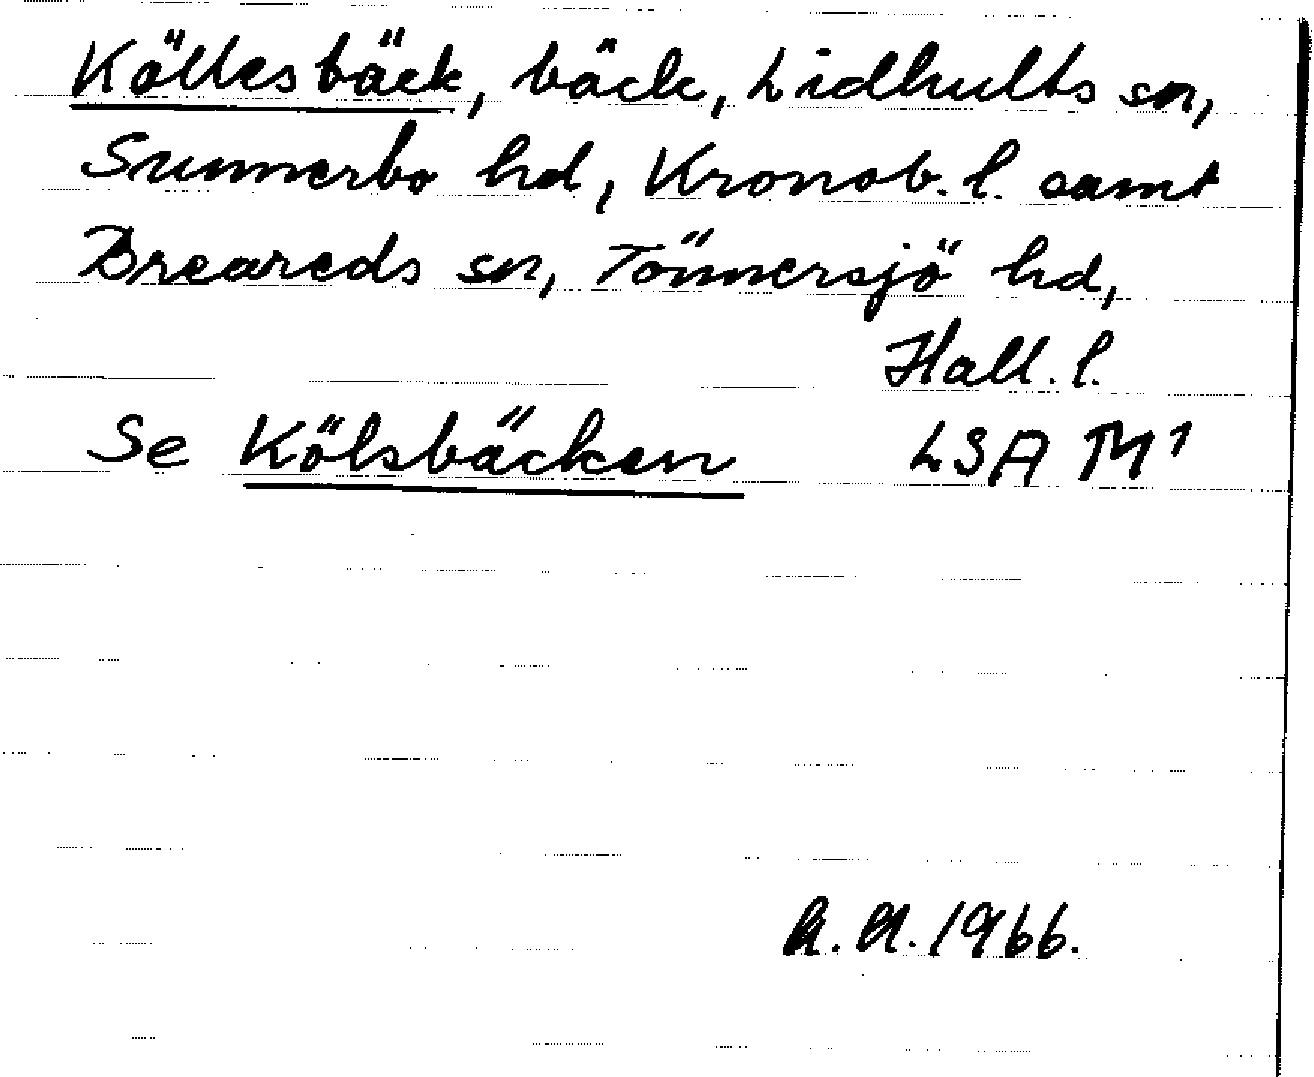 Köllesbäck, bäck, Lidhults sn,
Sunnerbo hd, Kronob. l. samt
Breareds sn, Tönnersjö hd,
Hall. l.
Se Kölsbäcken LSA M1
1966.